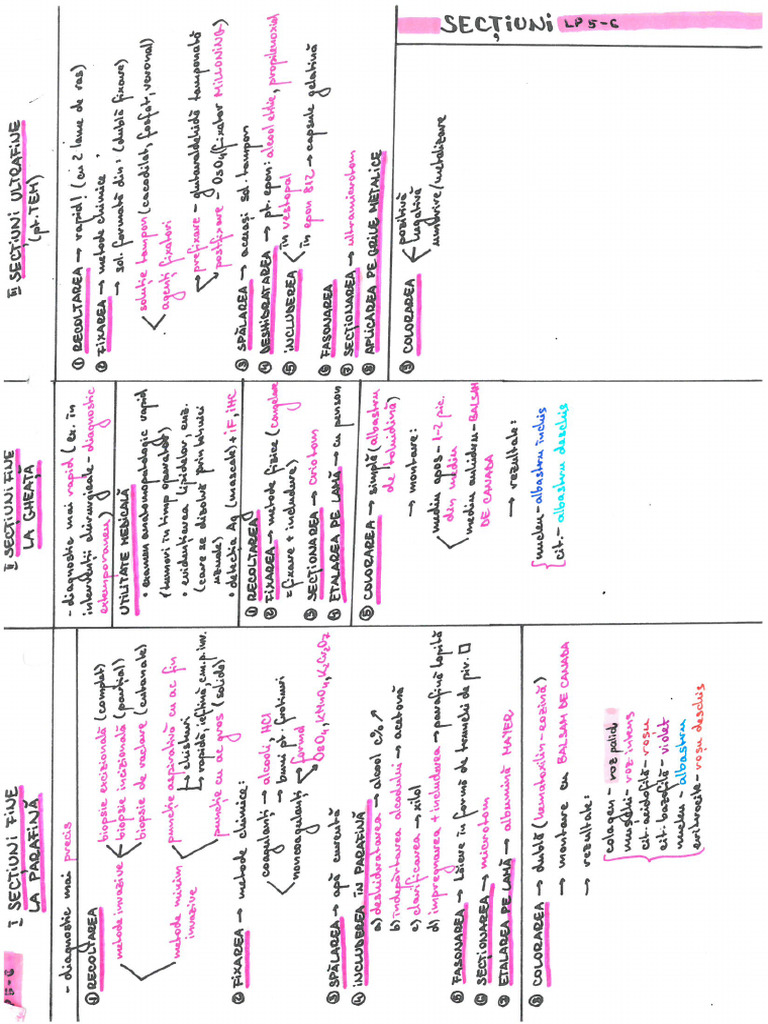 LP 5-6
SECȚIUNI LP 5-6
I SECȚIUNI FINE
LA PARAFINĂ
- diagnostic mai precis
① RECOLTAREA
metode invazive
biopsie excizională (complet)
biopsie incizională (parțial)
biopsie de raclare (cutanate)
metode minim
invazive
puncție aspirativă cu ac fin
↳ chisturi
↳ rapidă, ieftină, cu p. inv.
puncție cu ac gros (solide)
② FIXAREA → metode chimice:
coagulanți → alcooli, HCl
→ buni pt. frotiuri
necoagulanți → formol
↳ OsO4, KMnO4, K2Cr2O7
③ SPĂLAREA → apă curentă
④ INCLUDEREA ÎN PARAFINĂ
a) deshidratarea → alcool c% ↗
b) îndepărtarea alcoolului → acetonă
c) clarificarea → xilol
d) impregnarea + includerea → parafină topită
⑤ FASONAREA → tăiare în formă de trunchi de pir. □
⑥ SECȚIONAREA → microtom
⑦ ETALAREA PE LAMĂ → albumină MAYER
⑧ COLORAREA → dublă (hematoxilin-eozină)
→ montare cu BALSAM DE CANADA
→ rezultate:
colagen - roz palid
mușchi - roz intens
cit. acidofilă - roșu
cit. bazofilă - violet
nuclei - albastru
eritrocite - roșu deschis
II SECȚIUNI FINE
LA GHEAȚĂ
- diagnostic mai rapid (ex. în
intervenții chirurgicale - diagnostic
extemporaneu)
UTILITATE MEDICALĂ
• examen anatomopatologic rapid
(tumori în timp operator)
• evidențierea lipidelor, enz.
(care se dizolvă prin tehnici
uzuale)
• detecția Ag (mascate) + iF, iHC
① RECOLTAREA
② FIXAREA → metode fizice (congelare
= fixare + includere)
③ SECȚIONAREA → criotom
④ ETALAREA PE LAMĂ → cu penson
⑤ COLORAREA → simplă (albastru
de toluidină)
→ montare:
mediu apos - 1-2 pic.
din mediu
mediu anhidru - BALSAM
DE CANADA
→ rezultate:
nuclei - albastru închis
cit. - albastru deschis
III SECȚIUNI ULTRAFINE
(pt. TEM)
① RECOLTAREA → rapid! (cu 2 lame de ras)
② FIXAREA → metode chimice
→ sol. formată din: (dublă fixare)
soluție tampon (cacodilat, fosfat, veronal)
agenți fixatori
↳ prefixare - glutaraldehidă tamponată
↳ postfixare - OsO4 (fixator MILLONING)
③ SPĂLAREA → aceeași sol. tampon
④ DESHIDRATAREA → pt. epon: alcool etilic, propilenoxid
⑤ INCLUDEREA
în vestopal
în epon 812 → capsule gelatină
⑥ FASONAREA
⑦ SECȚIONAREA → ultramicrotom
⑧ APLICAREA PE GRILE METALICE
⑨ COLORAREA
pozitivă
negativă
umbrire/metalizare